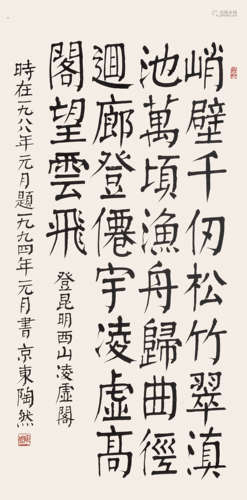 峭壁千仞松竹翠滇
池萬頃漁舟歸曲徑
迴廊登僊宇凌虛高
閣望雲飛
登昆明西山凌虛閣
時在一九八八年元月題一九九四年元月書京東陶然